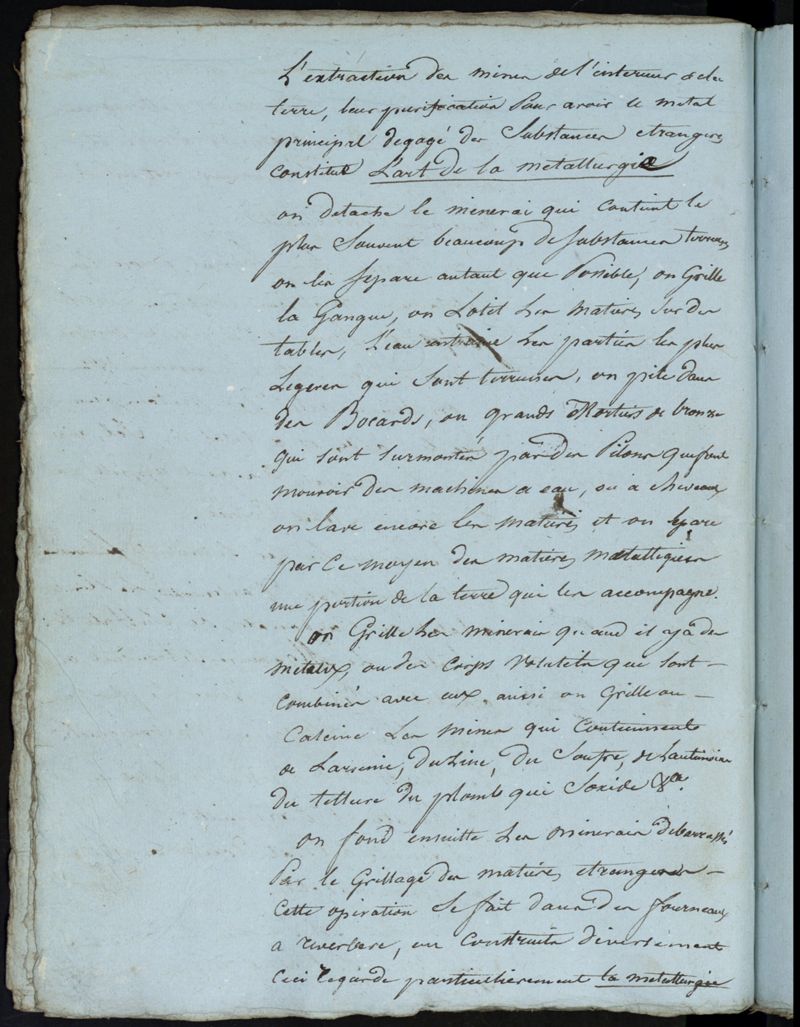 L'extraction des mines de l'interieur de la
terre, leur purification Pour avoir le metal
principal degagé des Substances etrangeres
constitue L'art de la metallurgie
on detache le minerai qui contient le
plus Souvent beaucoup de substances terreuses
on les separe autant que Possible, on Grille
la Gangue, on Lotit Les matieres Sur des
tables, L'eau entraine Les parties les plus
Legeres qui Sont terreuses, on pile dans
des Bocards, ou grands Mortiers de bronze
qui sont surmontés par des Pilons que font
mouvoir des machines a eau, ou a chevaux
on lave encore les matieres et on separe
par Ce moyen des matieres metalliques
une portion de la terre qui les accompagne.
on Grille Les minerais quand il y a des
metaux, ou des Corps Volatils que sont
Combinés avec eux aussi on Grille ou
Calcine Les mines qui Contiennent
de L'arsenic, du Zinc, du Soufre, de L'antimoine
du tellure du plomb qui S'oxide &a.
on fond ensuitte Les minerais debarrassés
Par le Grillage des matieres etrangeres
Cette operation Se fait dans des fourneaux
a reverbere, ou Construits diversement
Ceci regarde particullierement la metallurgie